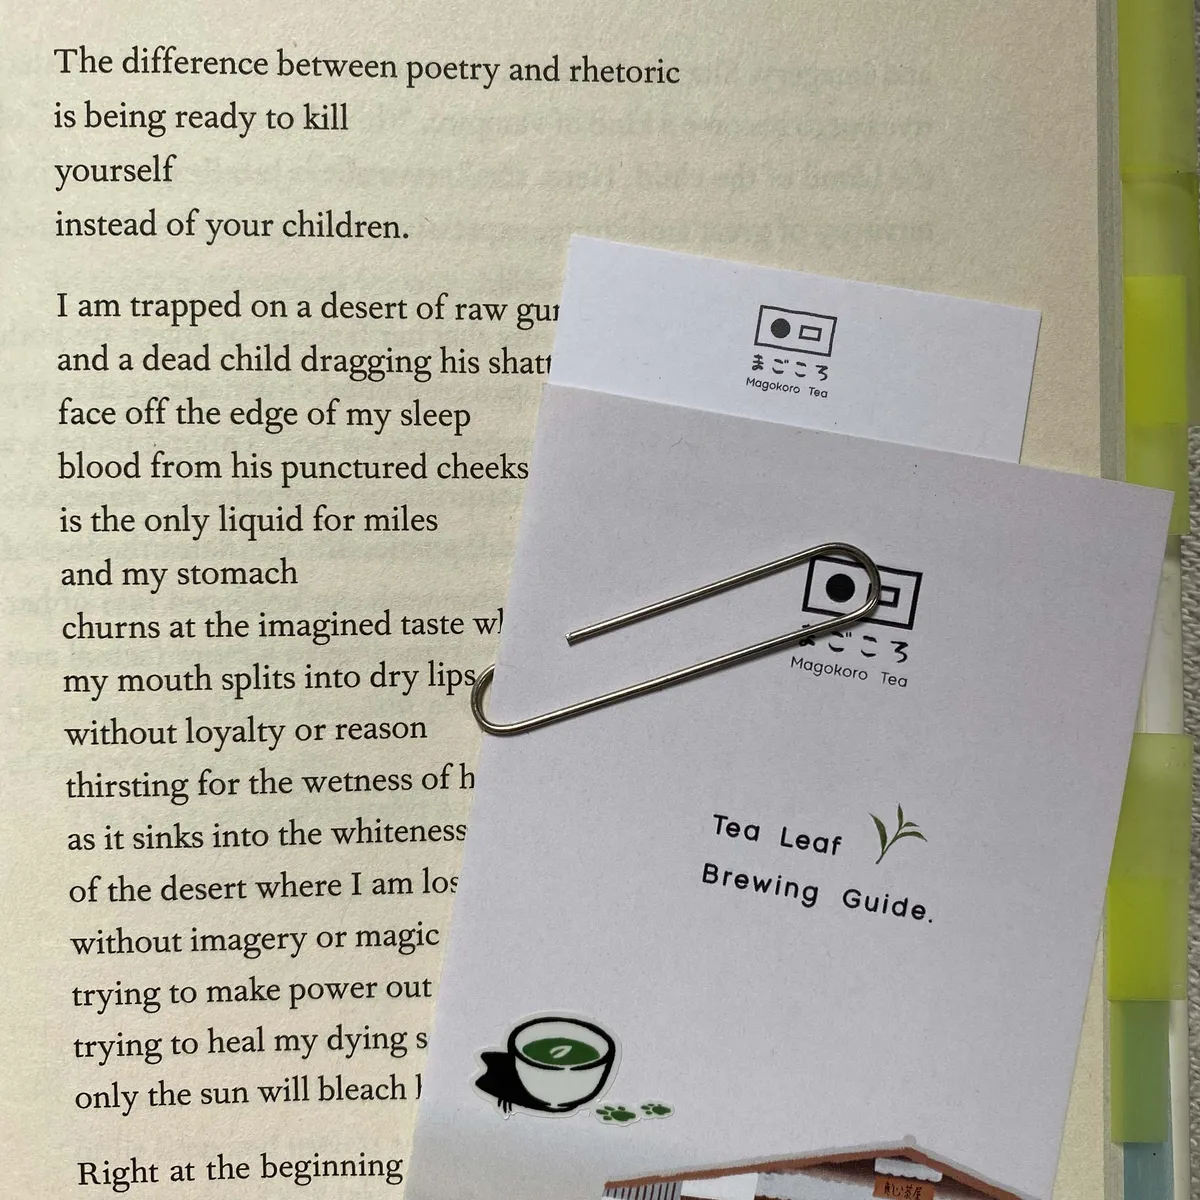 The difference between poetry and rhetoric
is being ready to kill
yourself
instead of your children.
I am trapped on a desert of raw
and a dead child dragging his
face off the edge of my sleep
blood from his punctured cheeks
is the only liquid for miles
and my stomach
churns at the imagined taste
my mouth splits into dry lips
without loyalty or reason
thirsting for the wetness of
as it sinks into the whiteness
of the desert where I am
without imagery or magic
trying to make power out
trying to heal my dying
only the sun will bleach
Right at the beginning
まごころ
Magokoro Tea
まごころ
Magokoro Tea
Tea Leaf
Brewing Guide.